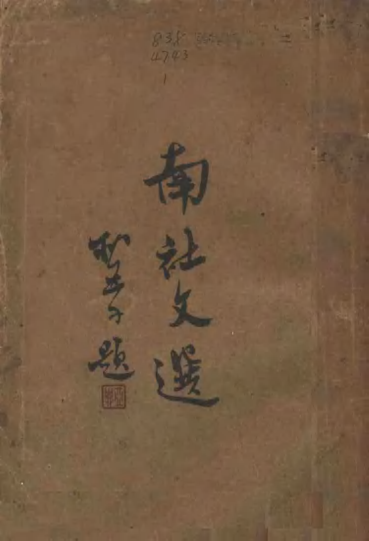 838
4743
1
南社文選
題